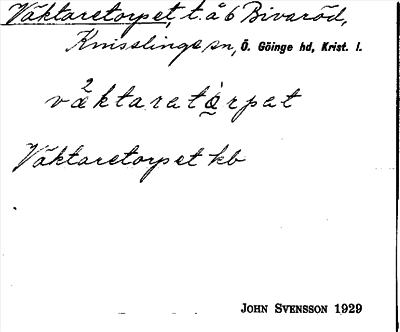 Väktaretorpet, t. å 6 Bivaröd,
Knisslinge sn, Ö. Göinge hd, Krist. l.
væ̀ktaratò̱rpat
Väktaretorpet kb
JOHN SVENSSON 1929